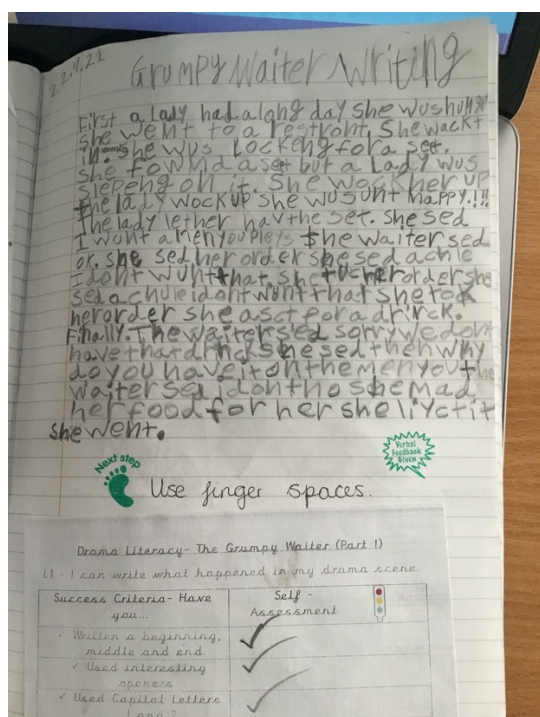 22.4.21
Grumpy Waiter Writing
First a lady had a long day she wus hungr
she went to a restront. She wackt
in. she wus Lockeng for a set.
she fownd a set but a Lady wus
slepeng on it. She wock her up
the lady wock up she wus unt happy.!!!
The lady let her hav the set. she sed
I wunt a menyou pleys the waiter sed
ok, she sed her order she sed achle
I dont wunt that, she tuc her order she
sed achule i dont wunt that she tok
her order she asct for a drinck.
Finally. The waiter sed sorry we dont
have that drincks he sed then why
do you have it on the menyou the
waiter sed i dont no she mad
her food for her she liyct it
she went.
Next step
Verbal
Feedback
Given
Use finger spaces.
Drama Literacy- The Grumpy Waiter (Part 1)
LI - I can write what happened in my drama scene.
Success Criteria- Have
you...
Self -
Assessment
✓ Written a beginning,
middle and end.
✓ Used interesting
openers
✓ Used Capital Letters